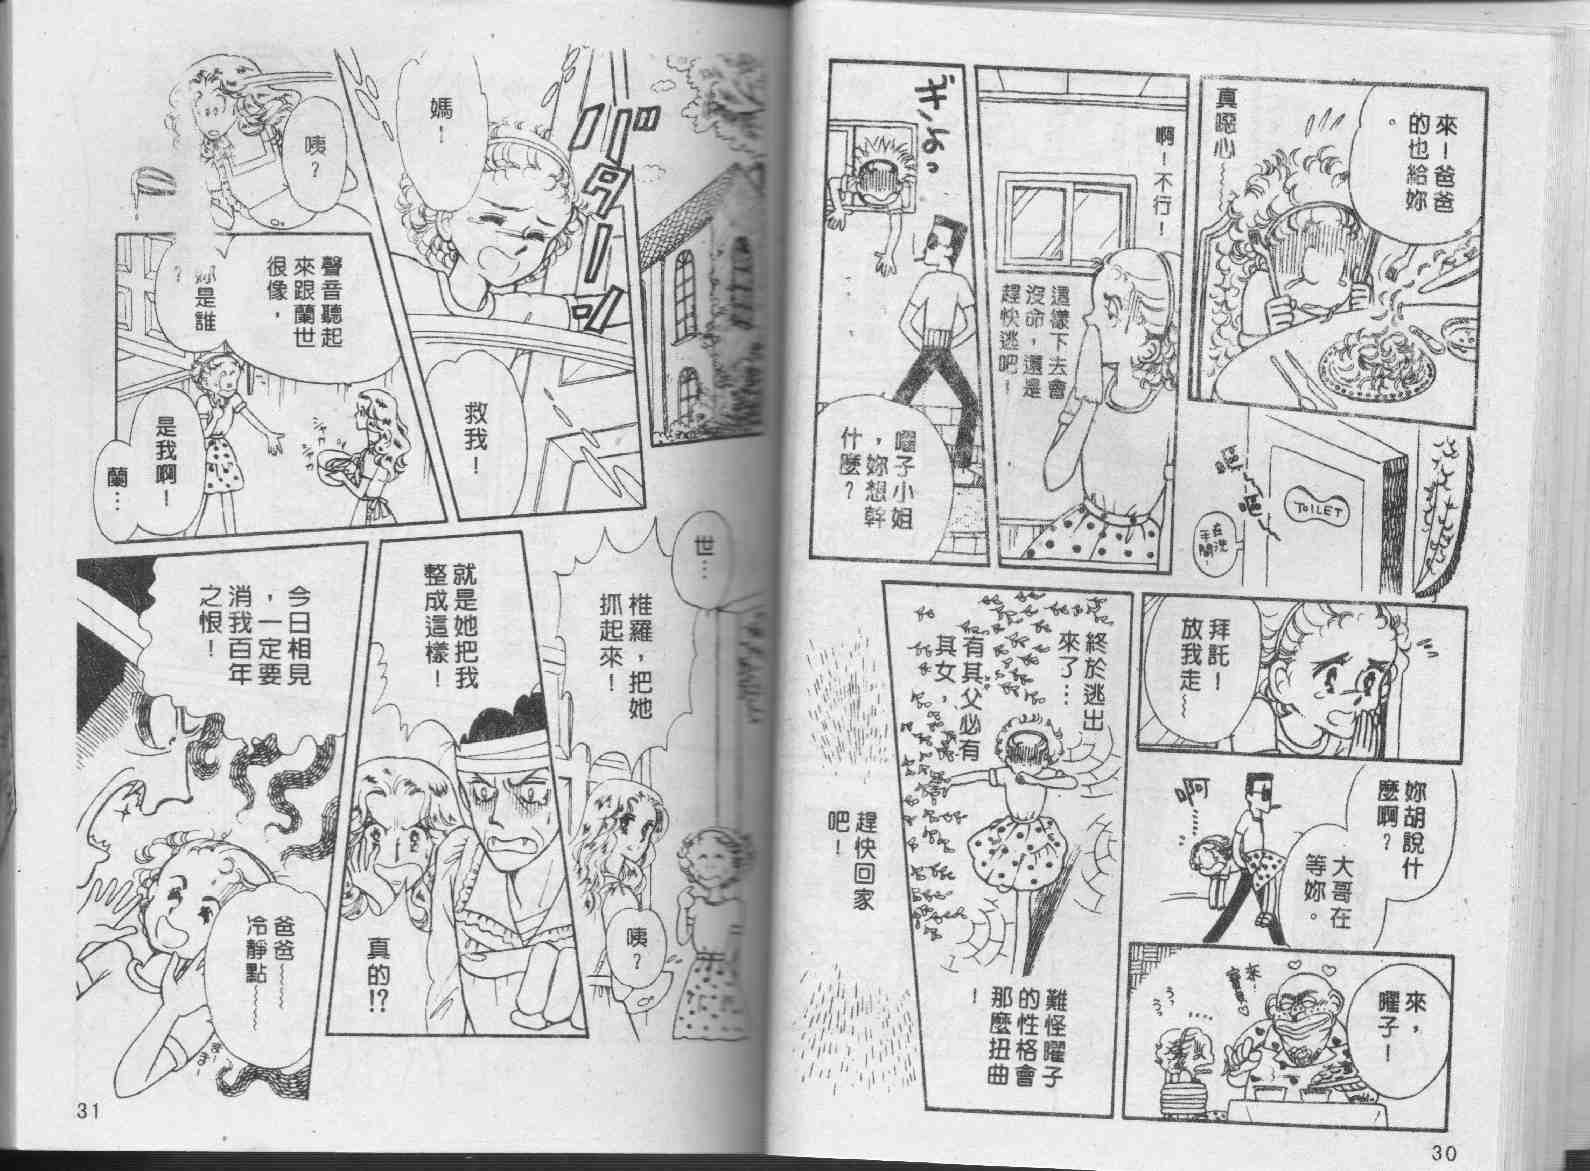 來！爸爸
的也給妳
。
真噁心～
啊！不行！
這樣下去會
沒命，還是
趕快逃吧！
ギょっ
嚁子小姐
，妳想幹
什麼？
嘔…
嘔…
TOILET
在洗
手間！
拜託！
放我走～
終於逃出
來了…
有其父必有
其女，
趕快回家
吧！
難怪嚁子
的性格會
那麼扭曲
！
妳胡說什
麼啊？
大哥在
等妳。
啊……
來，
嚁子！
來，
寶貝
うっ
うっ
30
バターン
媽！
咦？
救我！
聲音聽起
來跟蘭世
很像，
妳是誰
？
是我啊！
蘭…
シャカ
シャカ
世…
椎羅，把她
抓起來！
咦？
就是她把我
整成這樣！
真的!?
今日相見
，一定要
消我百年
之恨！
爸爸～～
冷靜點～～
まー
まー
31